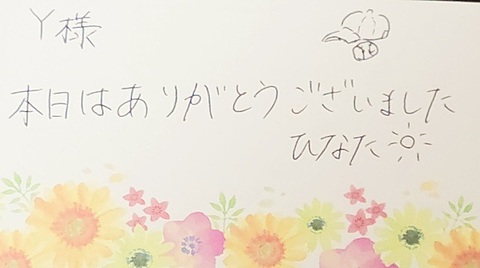 Y様
本日はありがとうございました
ひなた